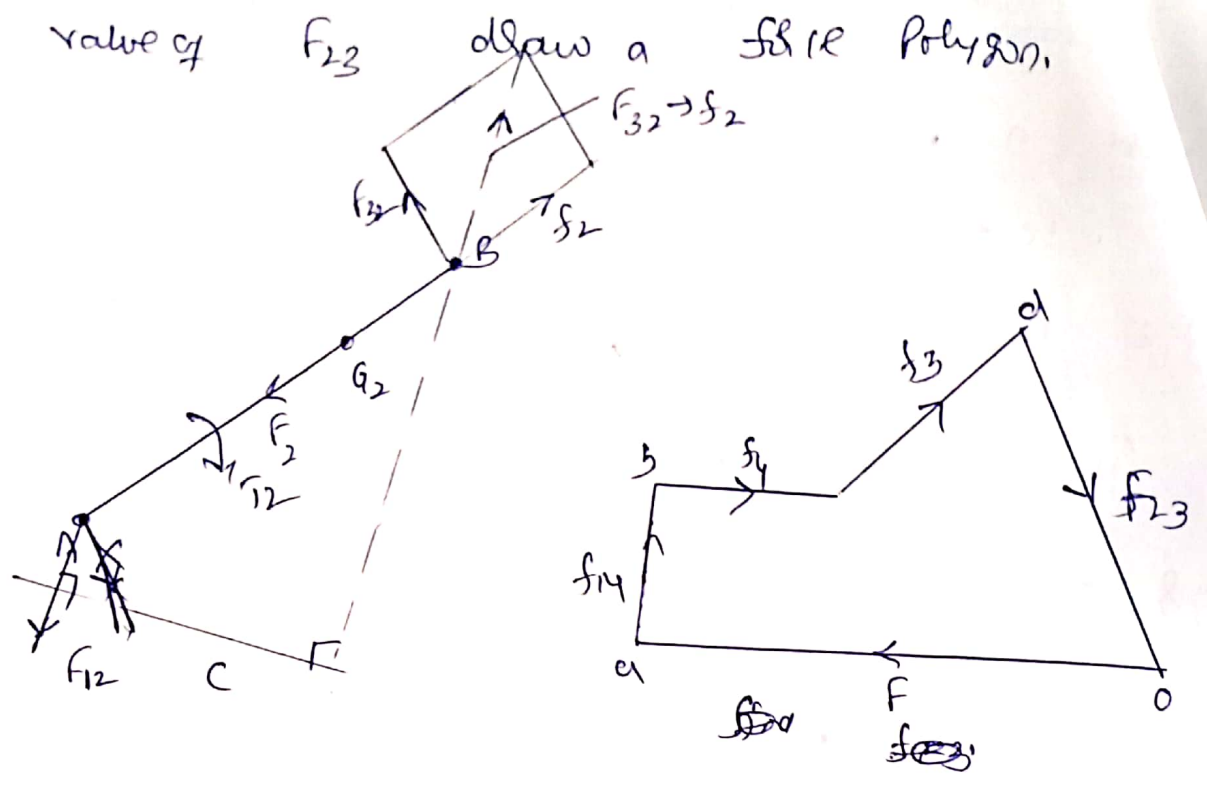 value of F23 draw a force Polygon.
F32 → f2
F32
f2
B
G2
F2
T12
F12
C
d
f3
b
f4
f23
f14
a
F
O